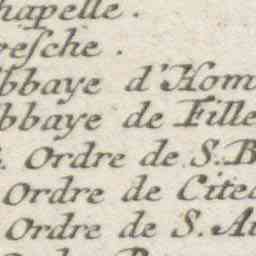 hapelle.
resche.
bbaye d'Hom
bbaye de Fille
. Ordre de S. B
Ordre de Cite
Ordre de S. Au